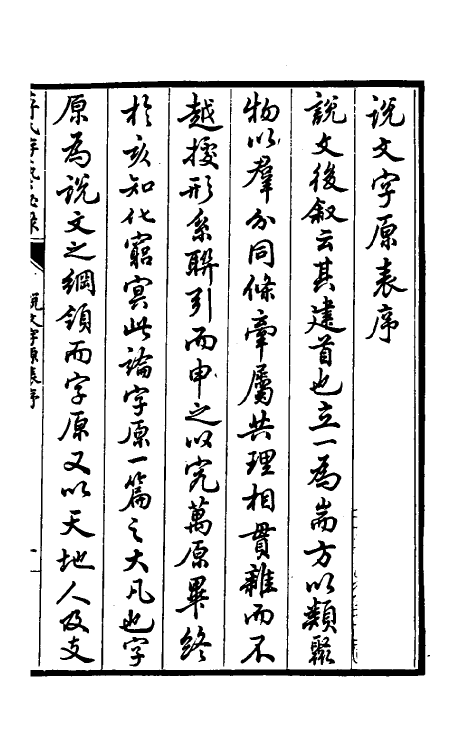 說文字原表序
說文後叙云其建首也立一為耑方以類聚
物以羣分同條牽屬共理相貫雜而不
越據形系聯引而申之以究萬原畢終
於亥知化窮冥此論字原一篇之大凡也字
原為說文之綱領而字原又以天地人及支
說文字原表序
一